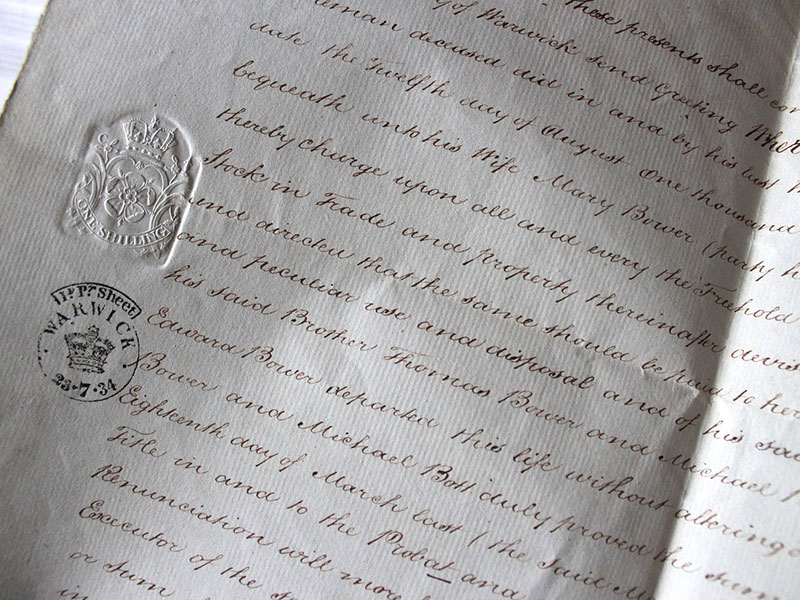 These presents shall con
of Warwick send Greeting Wher
deceased did in and by his last
date the Twelfth day of August One thousand
bequeath unto his Wife Mary Bower (party h
thereby charge upon all and every the Freehold
Stock in Trade and property thereinafter devis
and directed that the same should be paid to her
and peculiar use and disposal and of his said
his said Brother Thomas Bower and Michael
Edward Bower departed this life without altering
Bower and Michael Bott duly proved the same
Eighteenth day of March last (the said M
Title in and to the Probat and
Renunciation will more
Executor of the s
or sum
in
ONE SHILLING
WARWICK
23·7·34